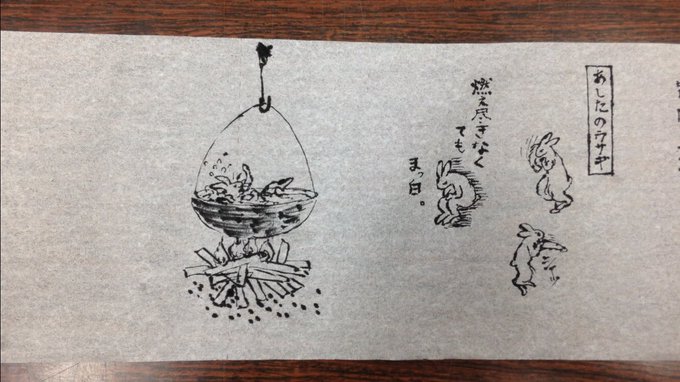 あしたのウサギ
シュッ
燃え尽きなく
ても
まっ白。